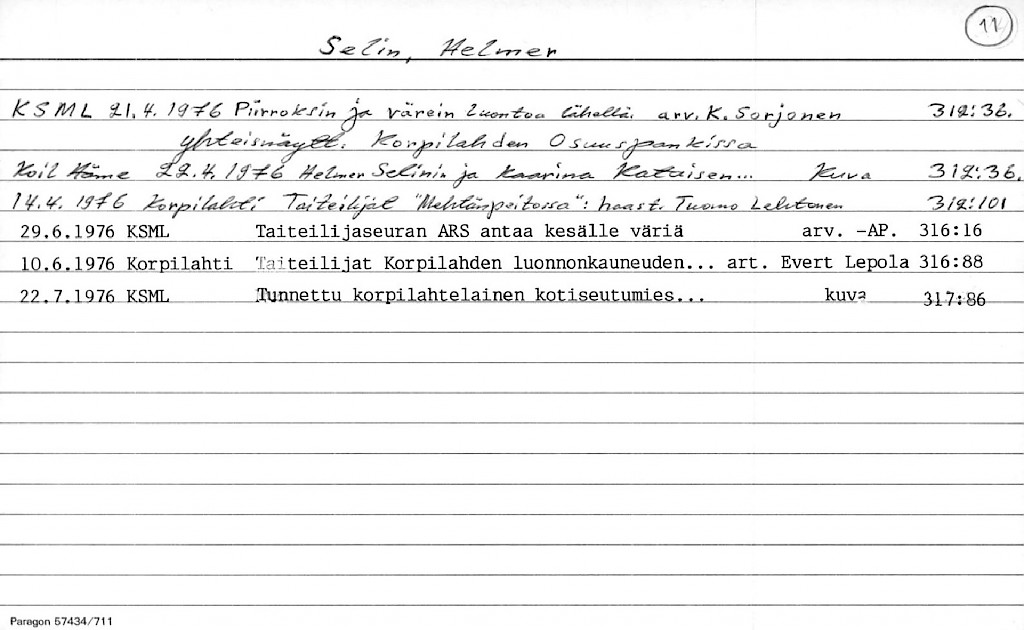 11
Selin, Helmer
KSML 21.4.1976 Piirroksin ja värein luontoa lähellä. arv. K. Sorjonen 312:36.
yhteisnäytt. Korpilahden Osuuspankissa
Koil Häme 22.4.1976 Helmer Selinin ja Kaarina Kataisen... Kuva 312:36.
14.4.1976 Korpilahti Taiteilijat "Mehtänpeitossa": haast. Tuomo Lehtonen 312:101
29.6.1976 KSML Taiteilijaseuran ARS antaa kesälle väriä arv. -AP. 316:16
10.6.1976 Korpilahti Taiteilijat Korpilahden luonnonkauneuden... art. Evert Lepola 316:88
22.7.1976 KSML Tunnettu korpilahtelainen kotiseutumies... kuva 317:86
Paragon 57434/711